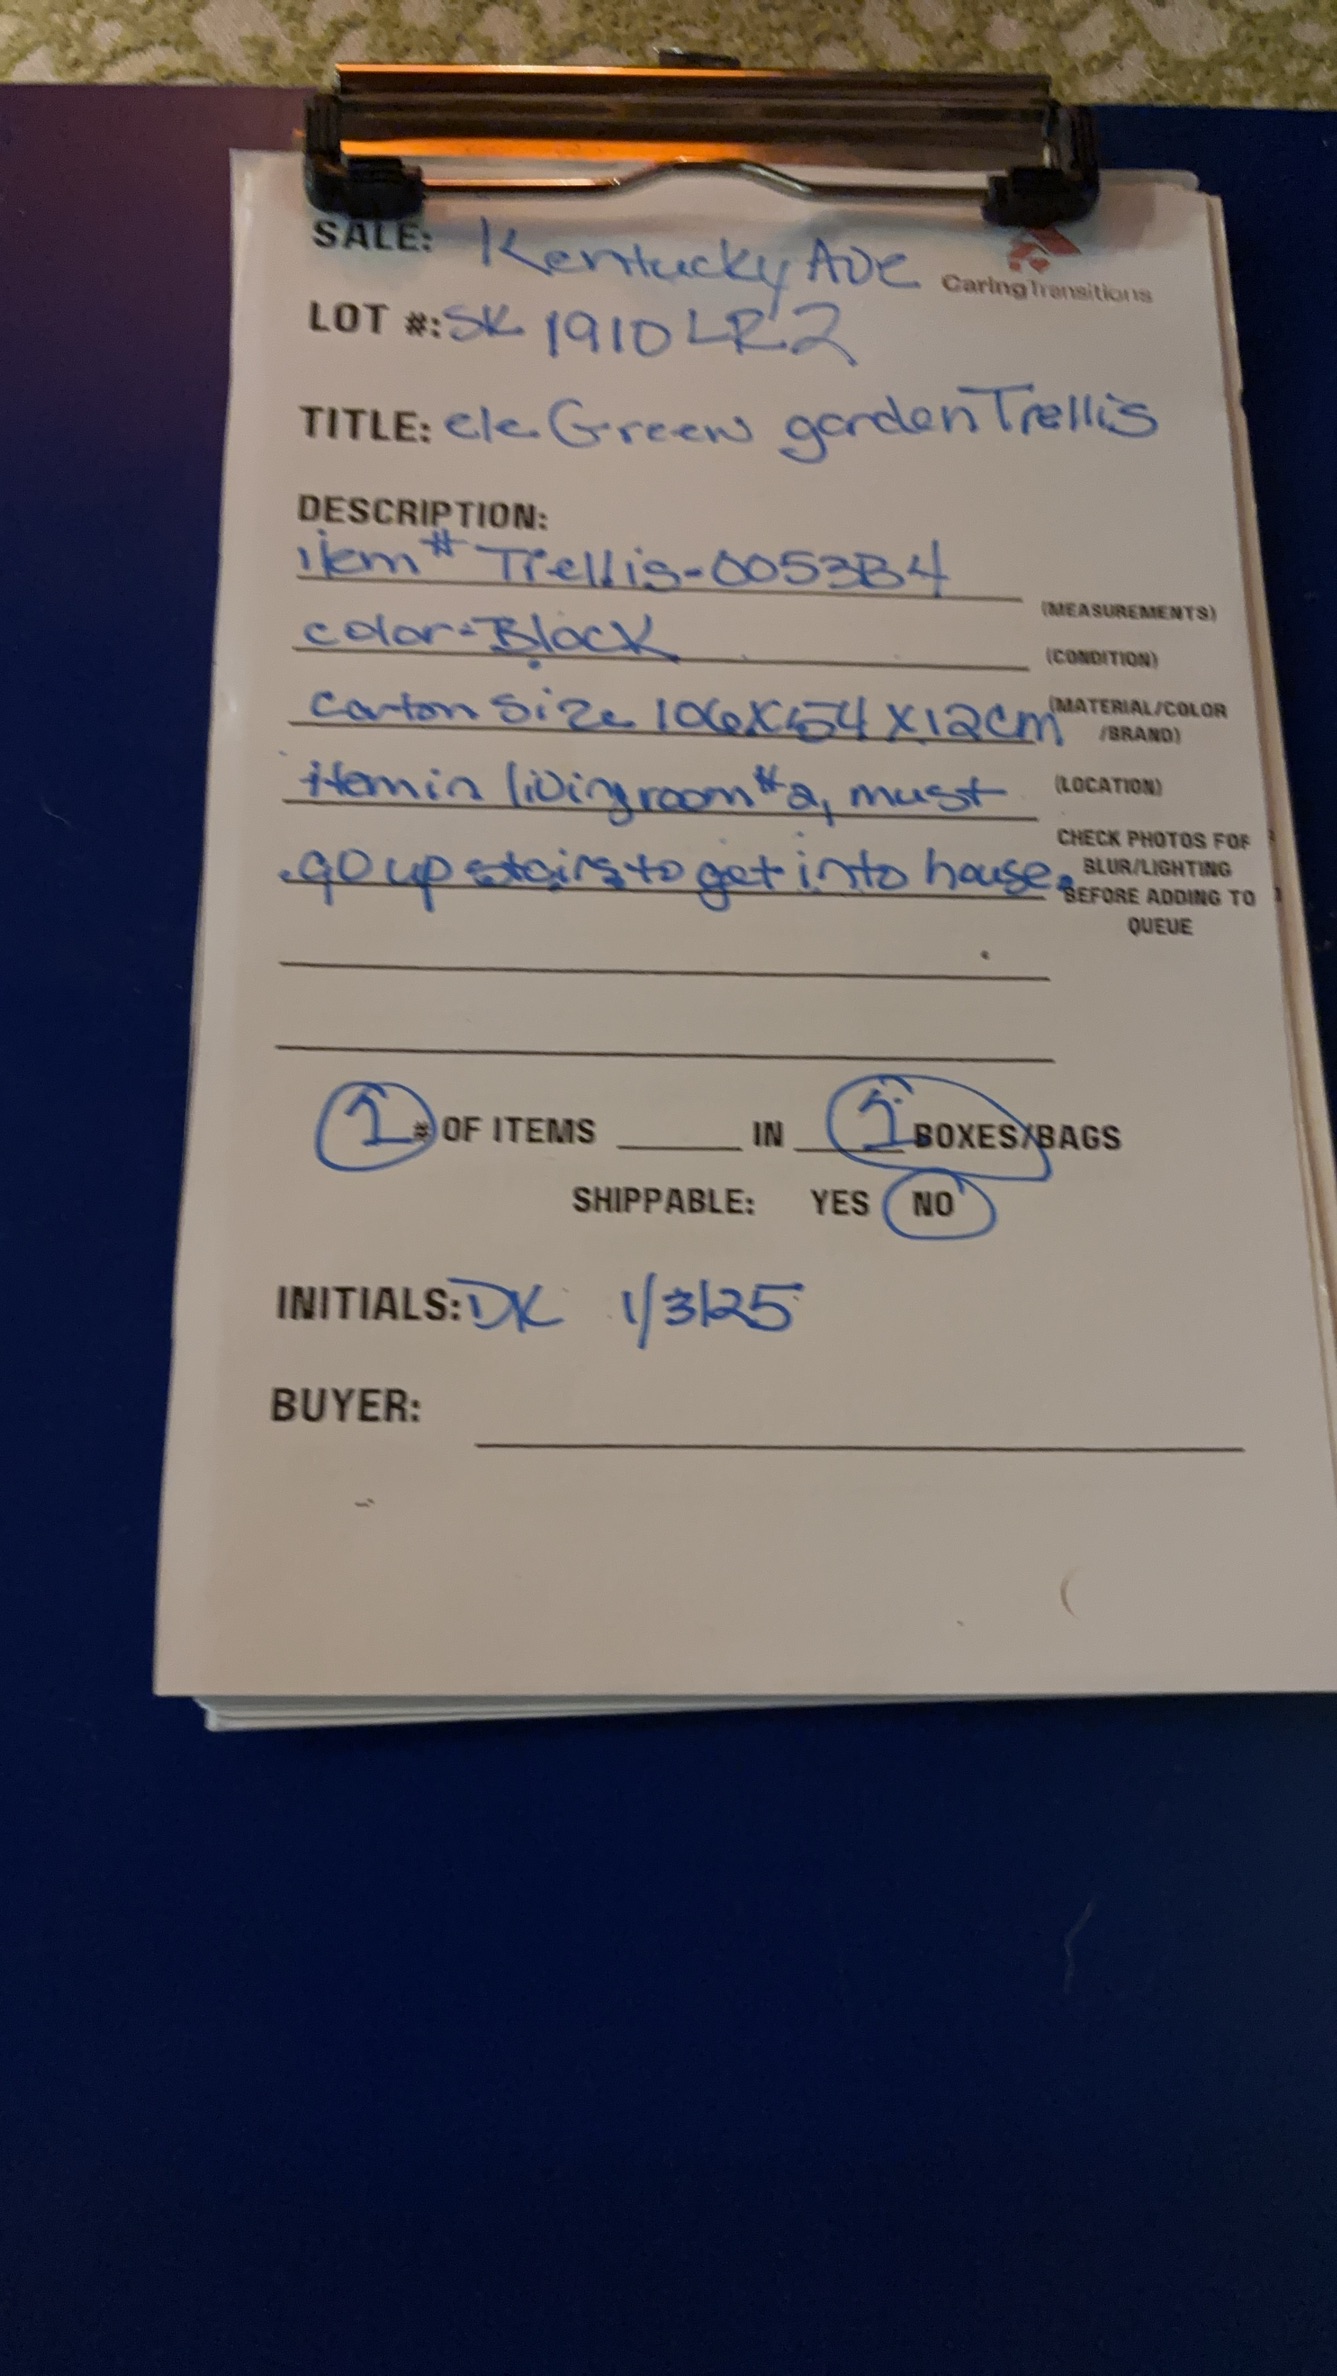 SALE: Kentucky Ave
CaringTransitions
LOT #: SK 1910 LR2
TITLE: ele Green garden Trellis
DESCRIPTION:
item # Trellis-0053B4
(MEASUREMENTS)
color-Black
(CONDITION)
carton size 106X54X12cm
(MATERIAL/COLOR
/BRAND)
item in living room #2, must
(LOCATION)
go up stairs to get into house.
CHECK PHOTOS FOR
BLUR/LIGHTING
BEFORE ADDING TO
QUEUE
1 # OF ITEMS ______ IN 1 BOXES/BAGS
SHIPPABLE: YES NO
INITIALS: DK 1/3/25
BUYER: